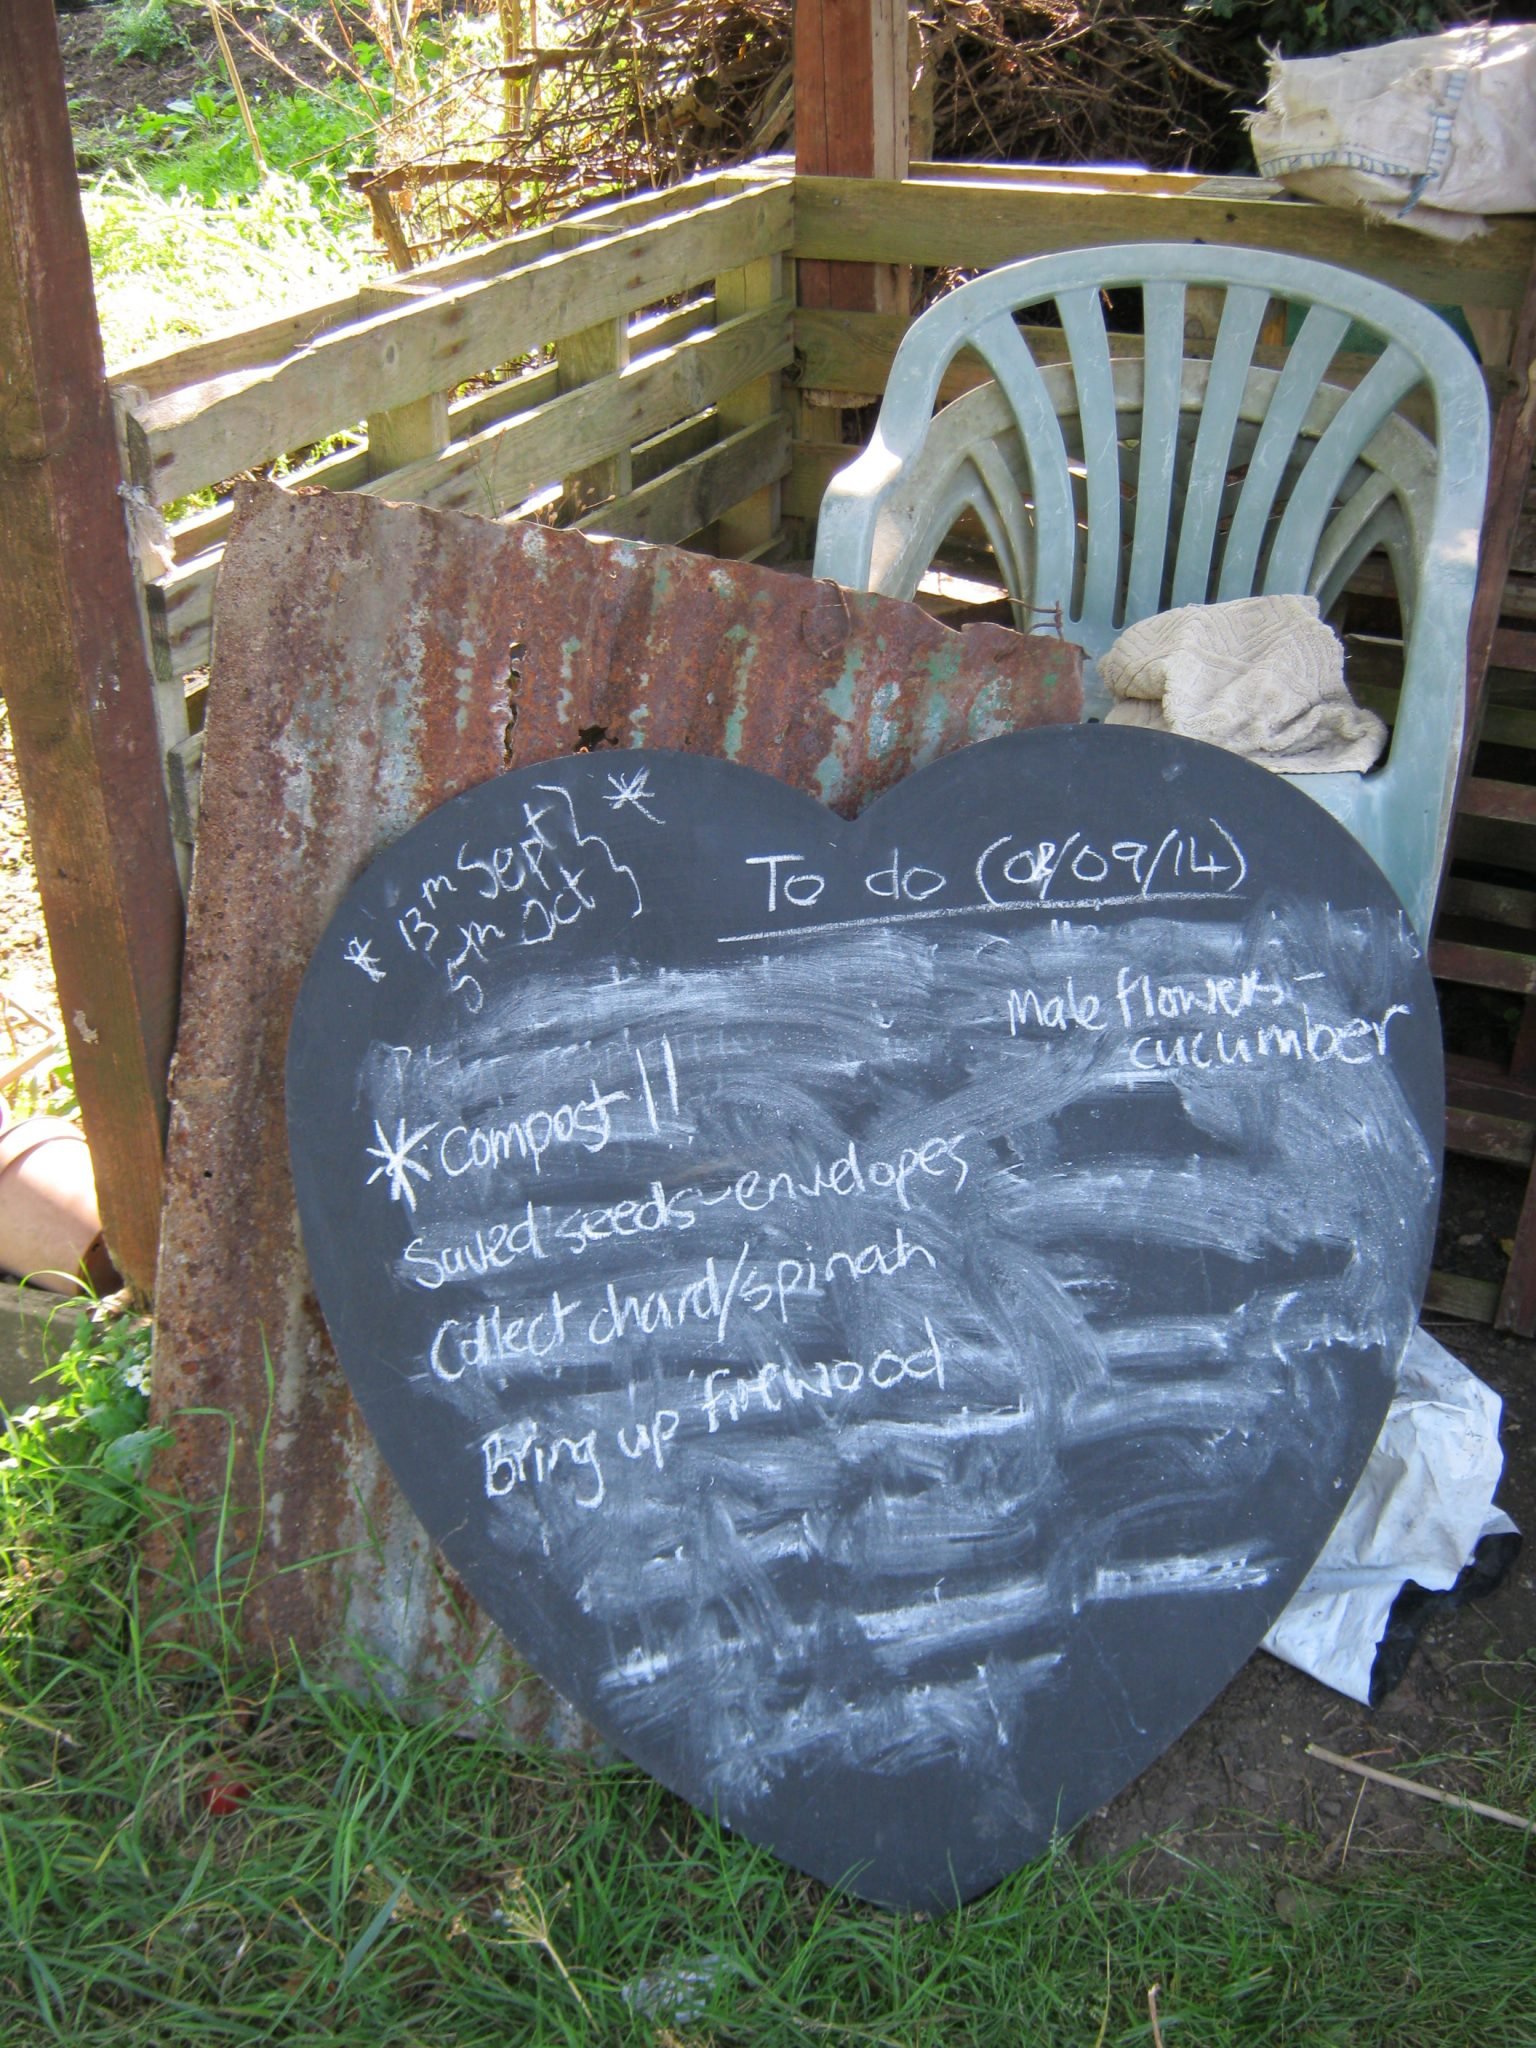 * 13th Sept } *
5th Oct }
To do (08/09/14)
Male flowers -
cucumber
* compost !!
Saved seeds - envelopes
Collect chard/spinach
Bring up firewood